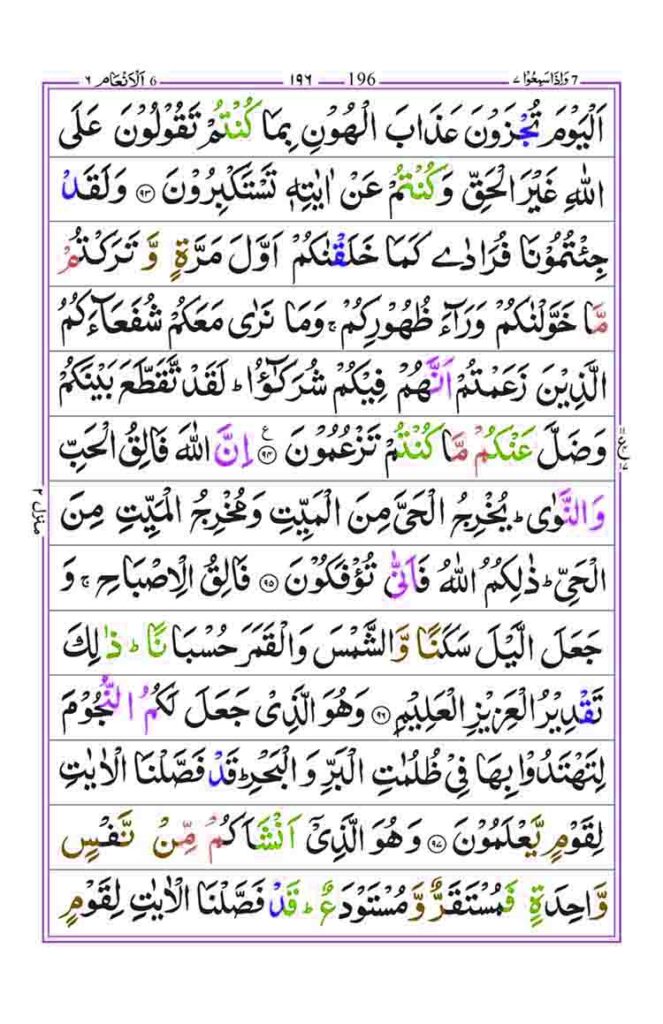 7 وَاِذَا سَمِعُوْا ٧ 196 ١٩٦ 6 اَلْاَنْعَام ٦
اَلْيَوْمَ تُجْزَوْنَ عَذَابَ الْهُوْنِ بِمَا كُنْتُمْ تَقُوْلُوْنَ عَلَى
اللّٰهِ غَيْرَ الْحَقِّ وَكُنْتُمْ عَنْ اٰيٰتِهٖ تَسْتَكْبِرُوْنَ ﴿٩٣﴾ وَلَقَدْ
جِئْتُمُوْنَا فُرَادٰى كَمَا خَلَقْنٰكُمْ اَوَّلَ مَرَّةٍ وَّ تَرَكْتُمْ
مَّا خَوَّلْنٰكُمْ وَرَآءَ ظُهُوْرِكُمْ ۚ وَمَا نَرٰى مَعَكُمْ شُفَعَآءَكُمُ
الَّذِيْنَ زَعَمْتُمْ اَنَّهُمْ فِيْكُمْ شُرَكٰٓؤُا ؕ لَقَدْ تَّقَطَّعَ بَيْنَكُمْ
وَضَلَّ عَنْكُمْ مَّا كُنْتُمْ تَزْعُمُوْنَ ﴿٩٤﴾ ع اِنَّ اللّٰهَ فَالِقُ الْحَبِّ
وَالنَّوٰى ؕ يُخْرِجُ الْحَىَّ مِنَ الْمَيِّتِ وَمُخْرِجُ الْمَيِّتِ مِنَ
الْحَىِّ ؕ ذٰلِكُمُ اللّٰهُ فَاَنّٰى تُؤْفَكُوْنَ ﴿٩٥﴾ فَالِقُ الْاِصْبَاحِ ۚ وَ
جَعَلَ الَّيْلَ سَكَنًا وَّالشَّمْسَ وَالْقَمَرَ حُسْبَانًا ؕ ذٰلِكَ
تَقْدِيْرُ الْعَزِيْزِ الْعَلِيْمِ ﴿٩٦﴾ وَهُوَ الَّذِىْ جَعَلَ لَكُمُ النُّجُوْمَ
لِتَهْتَدُوْا بِهَا فِىْ ظُلُمٰتِ الْبَرِّ وَالْبَحْرِ ؕ قَدْ فَصَّلْنَا الْاٰيٰتِ
لِقَوْمٍ يَّعْلَمُوْنَ ﴿٩٧﴾ وَهُوَ الَّذِىْٓ اَنْشَاَكُمْ مِّنْ نَّفْسٍ
وَّاحِدَةٍ فَمُسْتَقَرٌّ وَّمُسْتَوْدَعٌ ؕ قَدْ فَصَّلْنَا الْاٰيٰتِ لِقَوْمٍ
منزل ٢